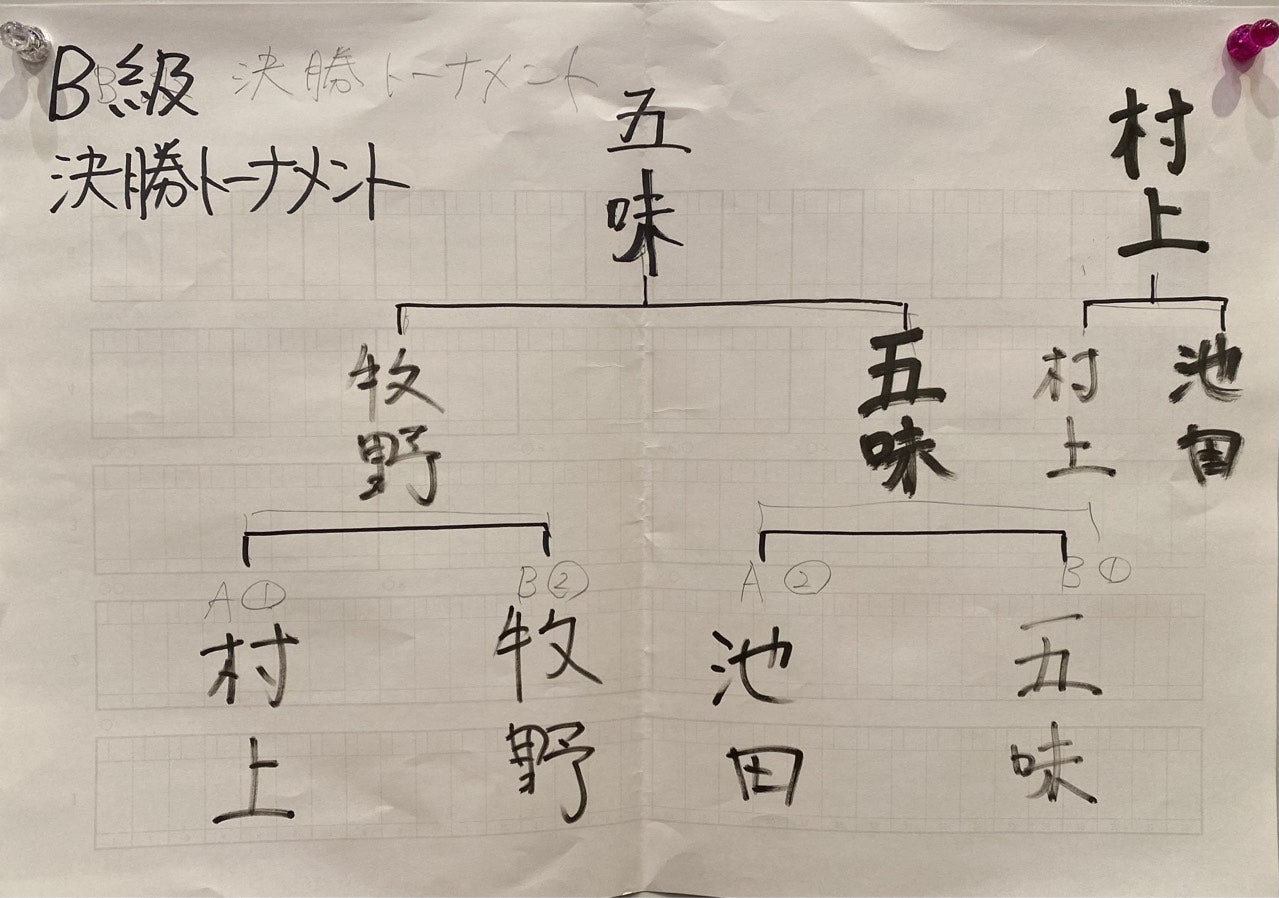 B級 決勝トーナメント
決勝トーナメント
五味
村上
牧野
五味
村上
池田
A①
B②
A②
B①
村上
牧野
池田
五味